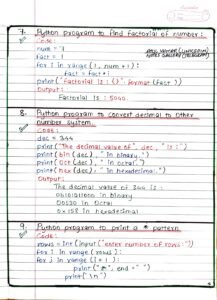 7. Python program to find factorial of number:
Code:
num = 7
fact = 1
for i in range (1, num + 1):
fact = fact * i
print ("factorial is : {}". format (fact))
Output:
Factorial is : 5040.
8. Python program to convert decimal to other
number system.
Code:
dec = 344
print ("The decimal value of", dec, "is :")
print (bin (dec), "in binary.")
print (oct (dec), "in octal.")
print (hex (dec), "in hexadecimal.")
Output:
The decimal value of 344 is :
0b101011000 in binary
0o530 in Octal
0x158 in hexadecimal
9. Python program to print a * pattern.
Code:
rows = int (input ("enter number of rows :"))
for i in range (rows):
for j in range (i + 1):
print ("*", end = " ")
print ("\n")